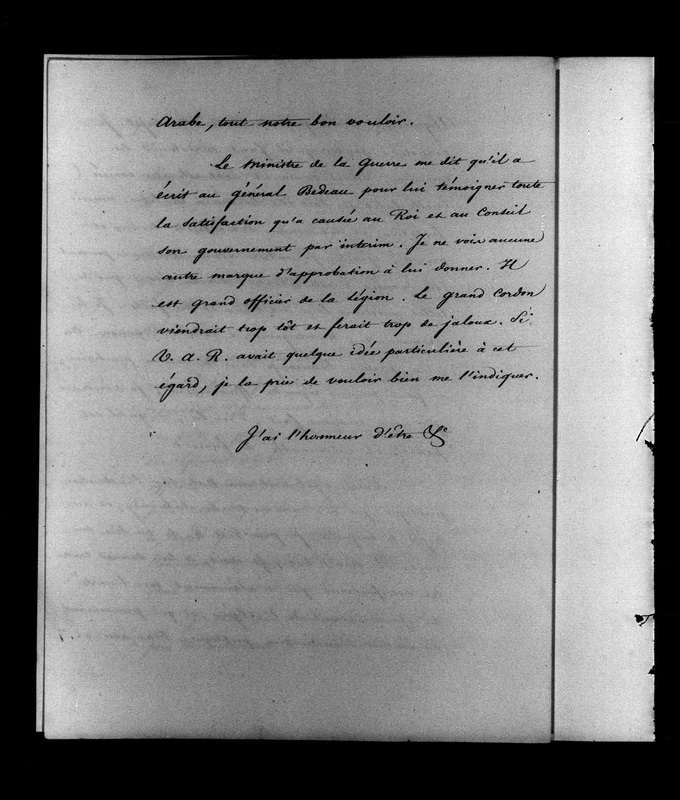 Arabe, tout notre bon vouloir.
Le Ministre de la Guerre me dit qu'il a
écrit au général Bedeau pour lui témoigner toute
la satisfaction qu'a causée au Roi et au Conseil
son gouvernement par intérim. Je ne vois aucune
autre marque d'approbation à lui donner. Il
est grand officier de la Légion. Le grand Cordon
viendrait trop tôt et ferait trop de jaloux. Si
V. A. R. avait quelque idée particulière à cet
égard, je la prie de vouloir bien me l'indiquer.
J'ai l'honneur d'être &c